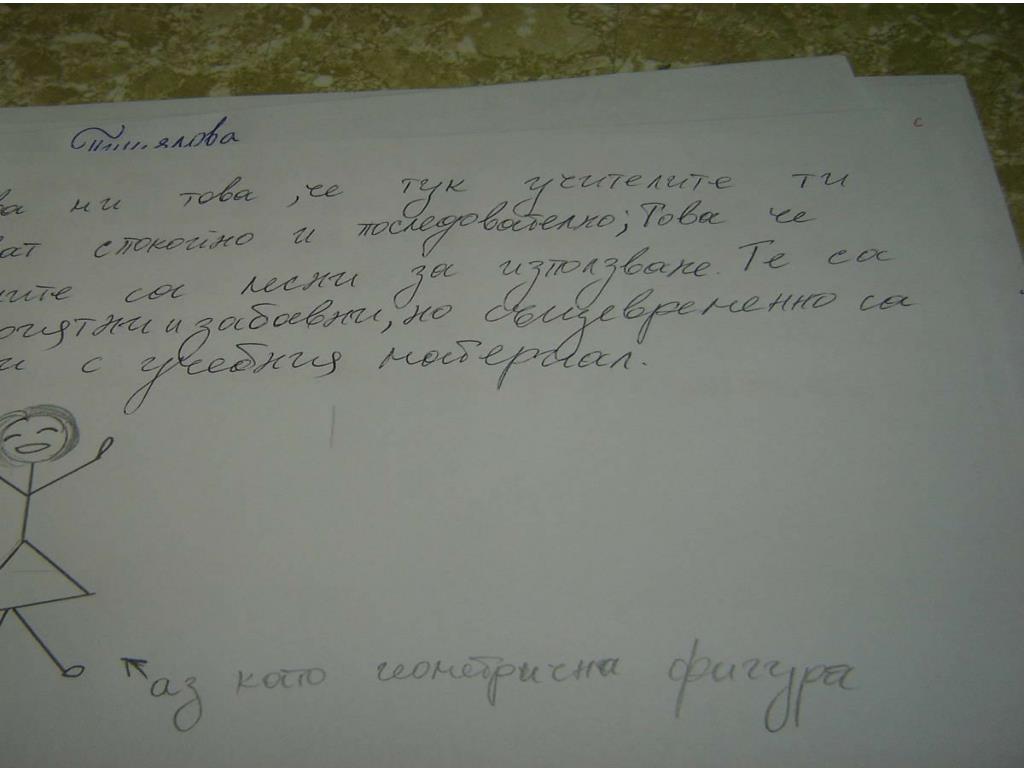 ва ми това, че тук учителите ти
ват спокойно и последователно; Това че
ните са лесни за използване. Те са
иятни и забавни, но същевременно са
и с учебния материал.
аз като геометрична фигура